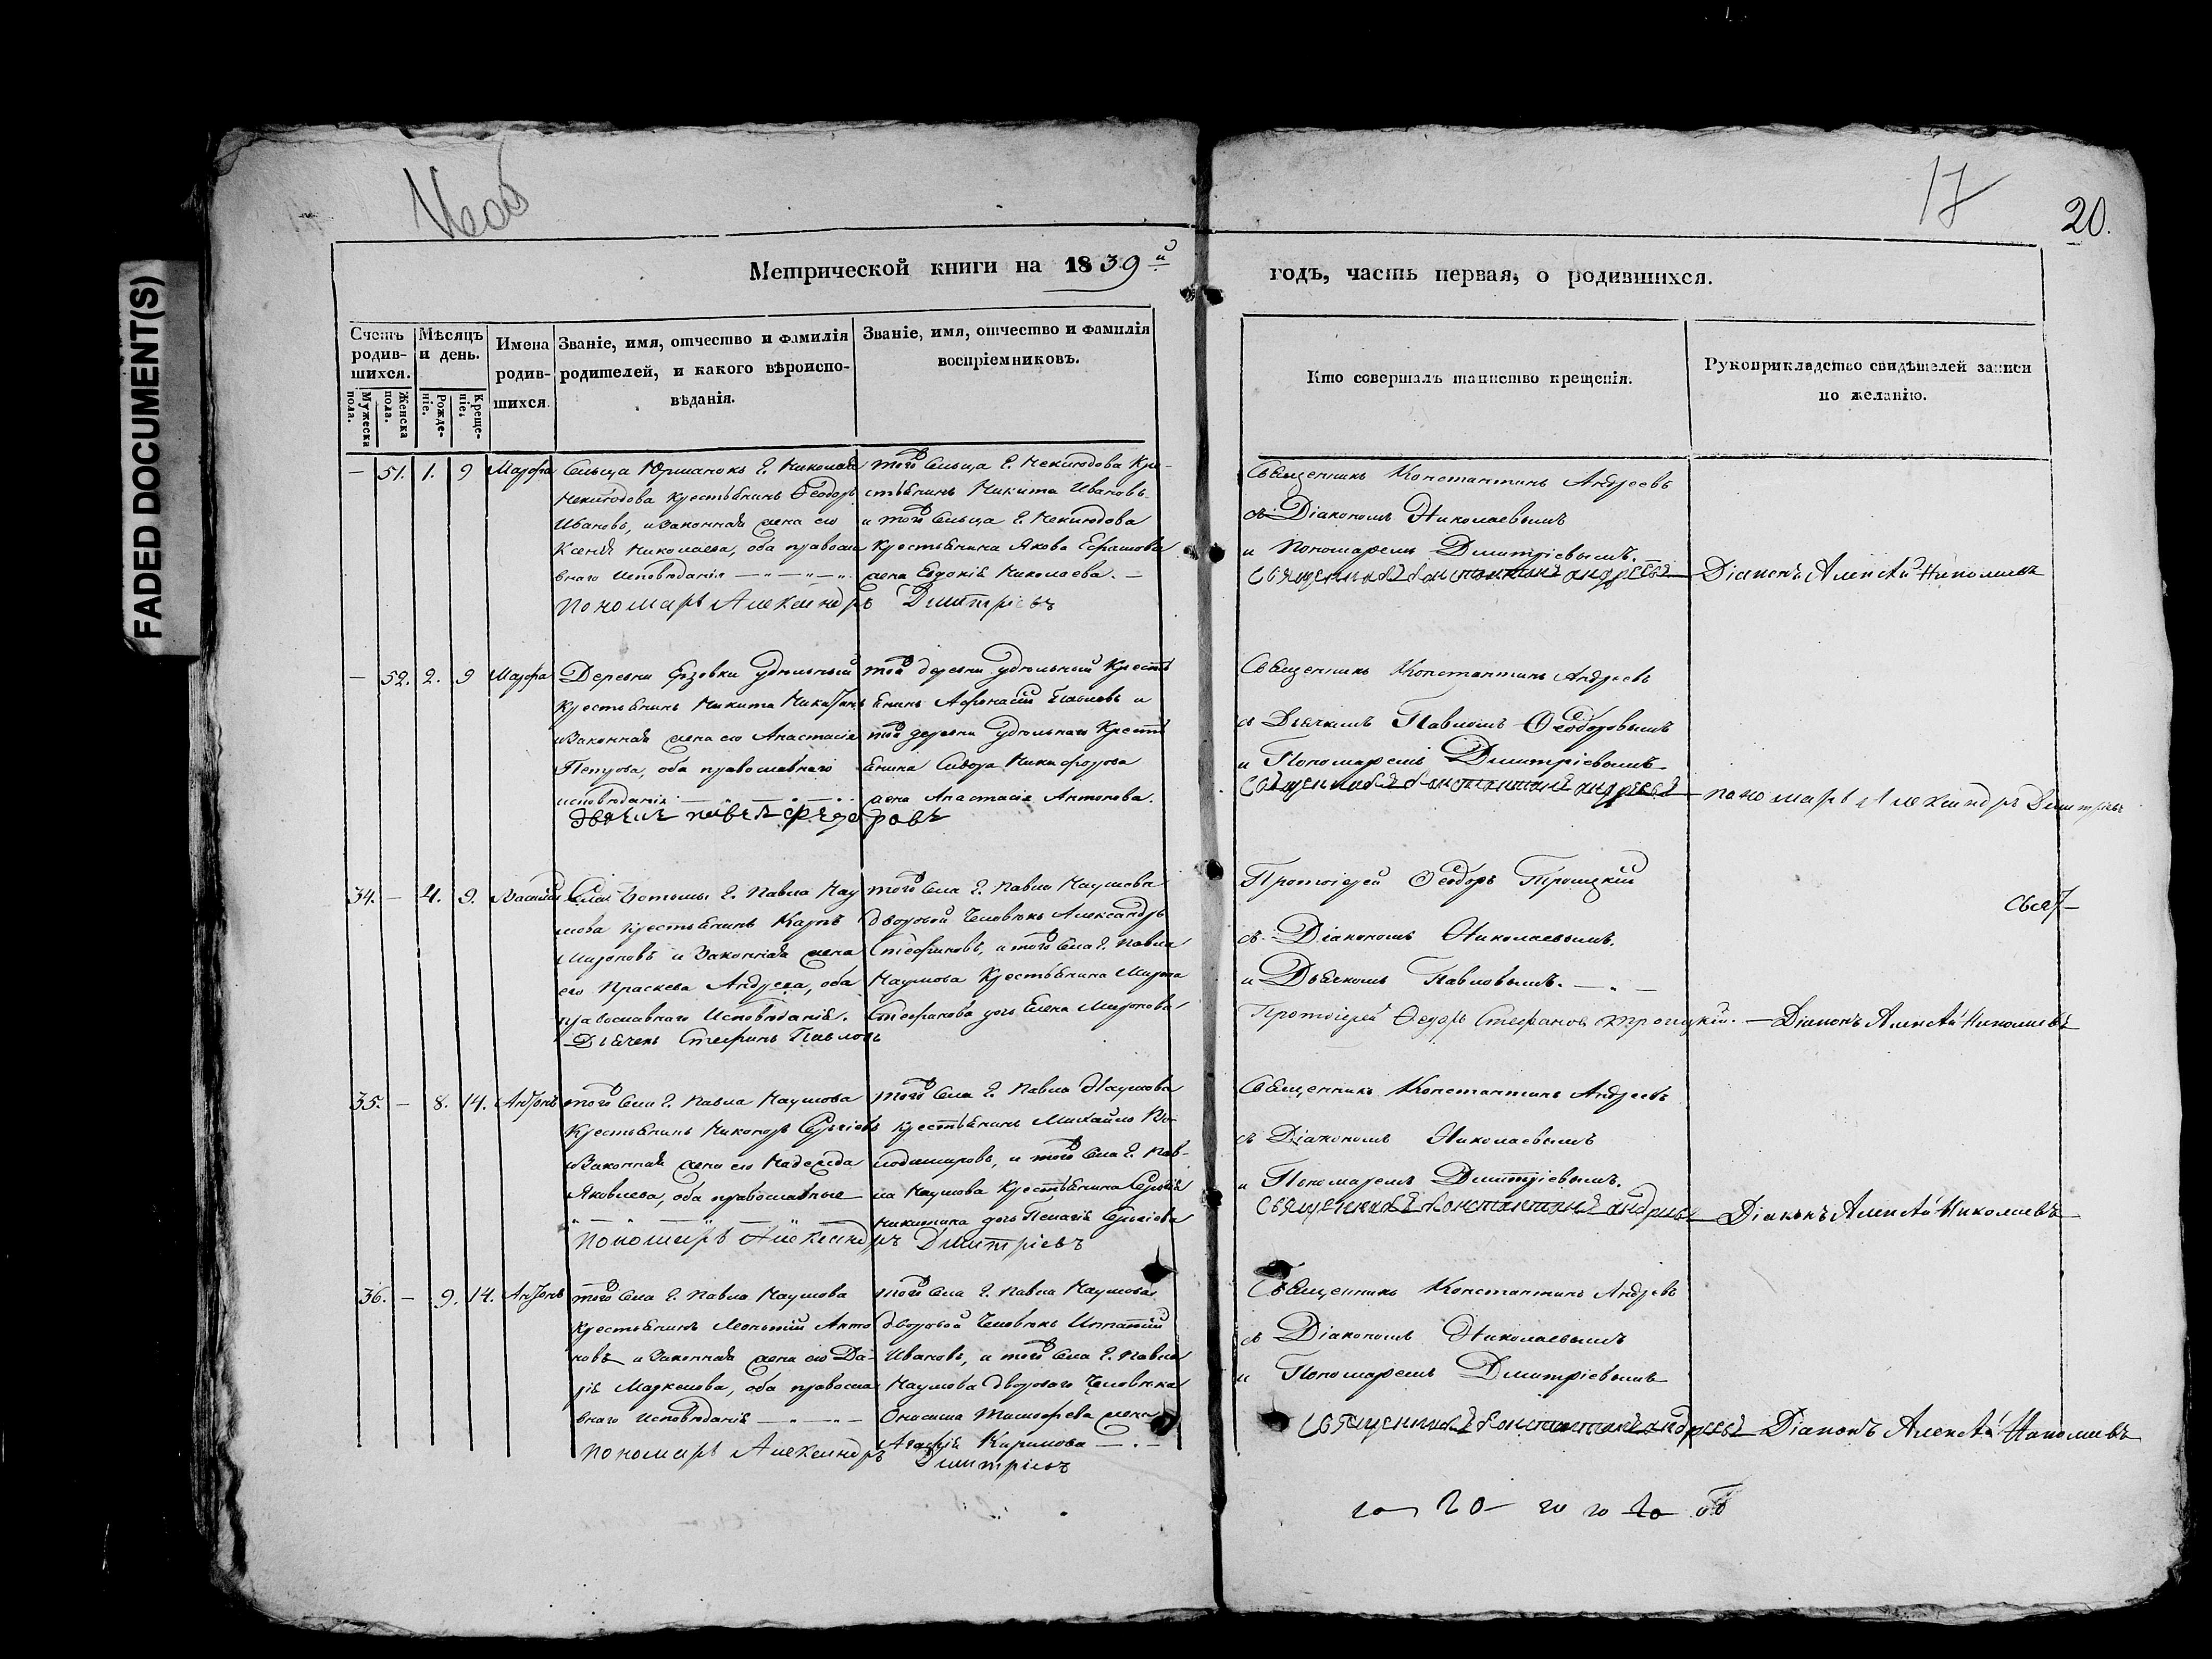 FADED DOCUMENT(S)
17
20.
Метрической книги на 1839й
годъ, часть первая, о родившихся.
Счетъ родив-шихся.
Мужеска пола.
Женска пола.
Мѣсяцъ и день.
Рожде-ніе.
Креще-ніе.
Имена родив-шихся
Званіе, имя, отчество и фамилія
родителей, и какого вѣроиспо-
вѣданія.
Званіе, имя, отчество и фамилія
воспріемниковъ.
Кто совершалъ таинство крещенія.
Рукоприкладство свидѣтелей записи
по желанію.
— 51. 1. 9 Марфа
Сельца Юрманокъ Г. Николая
Неклюдова крестьянинъ Ѳеодоръ
Ивановъ, и законная жена его
Ксенія Николаева, оба правосла
внаго исповѣданія
Пономарь Александръ Димитріевъ
того сельца Г. Неклюдова кре-
стьянинъ Никита Ивановъ
и того сельца Г. Неклюдова
крестьянина Якова Ефимова
жена Евдокія Николаева. —
Священникъ Константинъ Андреевъ
съ Діакономъ Николаевымъ
и Пономаремъ Димитріевымъ.
Священникъ Константинъ Андреевъ
Діаконъ Алексѣй Николаевъ
— 52. 2. 9 Марфа
Деревни удѣльный
крестьянинъ Никита Никитинъ
и законная жена его Анастасія
Петрова, оба православнаго
исповѣданія
Дьячекъ Павелъ Федоровъ
той деревни удѣльный крестъ
янинъ Афанасій Павловъ и
той деревни удѣльнаго крестъ
янина Сидора Никифорова
жена Анастасія Антонова.
Священникъ Константинъ Андреевъ
съ Дьячкомъ Павломъ Ѳеодоровымъ
и Пономаремъ Димитріевымъ
Священникъ Константинъ Андреевъ
Пономарь Александръ Димитріевъ
34. — 4. 9. Василій
Села Ботьмы Г. Павла Нау
мова крестьянинъ Карпъ
Мироновъ и законная жена
его Праскева Андреева, оба
православнаго исповѣданія.
Дьячекъ Стефанъ Павловъ
того села Г. Павла Наумова
дворовой человѣкъ Александръ
Стефановъ, и того села Г. Павла
Наумова крестьянина Мирона
Стефанова дочь Елена Миронова
Протоіерей Ѳеодоръ Троицкій
съ Діакономъ Николаевымъ.
и Дьячкомъ Павловымъ.
Протоіерей Ѳедоръ Стефановъ Троицкій.
Діаконъ Алексѣй Николаевъ
35. — 8. 14. Антонъ
того села Г. Павла Наумова
крестьянинъ Никоноръ Сергіевъ
и законная жена его Надежда
Яковлева, оба православные
Пономарь Александръ Димитріевъ
того села Г. Павла Наумова
крестьянинъ Михайло Во-
лодимировъ, и того села Г. Пав-
ла Наумова крестьянина Сергія
Никитина дочь Пелагія Сергіева
Священникъ Константинъ Андреевъ
съ Діакономъ Николаевымъ
и Пономаремъ Димитріевымъ.
Священникъ Константинъ Андреевъ
Діаконъ Алексѣй Николаевъ
36. — 9. 14. Антонъ
того села Г. Павла Наумова
крестьянинъ Леонтій Анто
новъ и законная жена его Да-
рія Маркелова, оба правосла
внаго исповѣданія
Пономарь Александръ Димитріевъ
того села Г. Павла Наумова
дворовой человѣкъ Игнатій
Ивановъ, и того села Г. Павла
Наумова дворового человѣка
Онисима Тимофеева жена
Агафія Кирилова
Священникъ Константинъ Андреевъ
съ Діакономъ Николаевымъ
и Пономаремъ Димитріевымъ
Священникъ Константинъ Андреевъ
Діаконъ Алексѣй Николаевъ